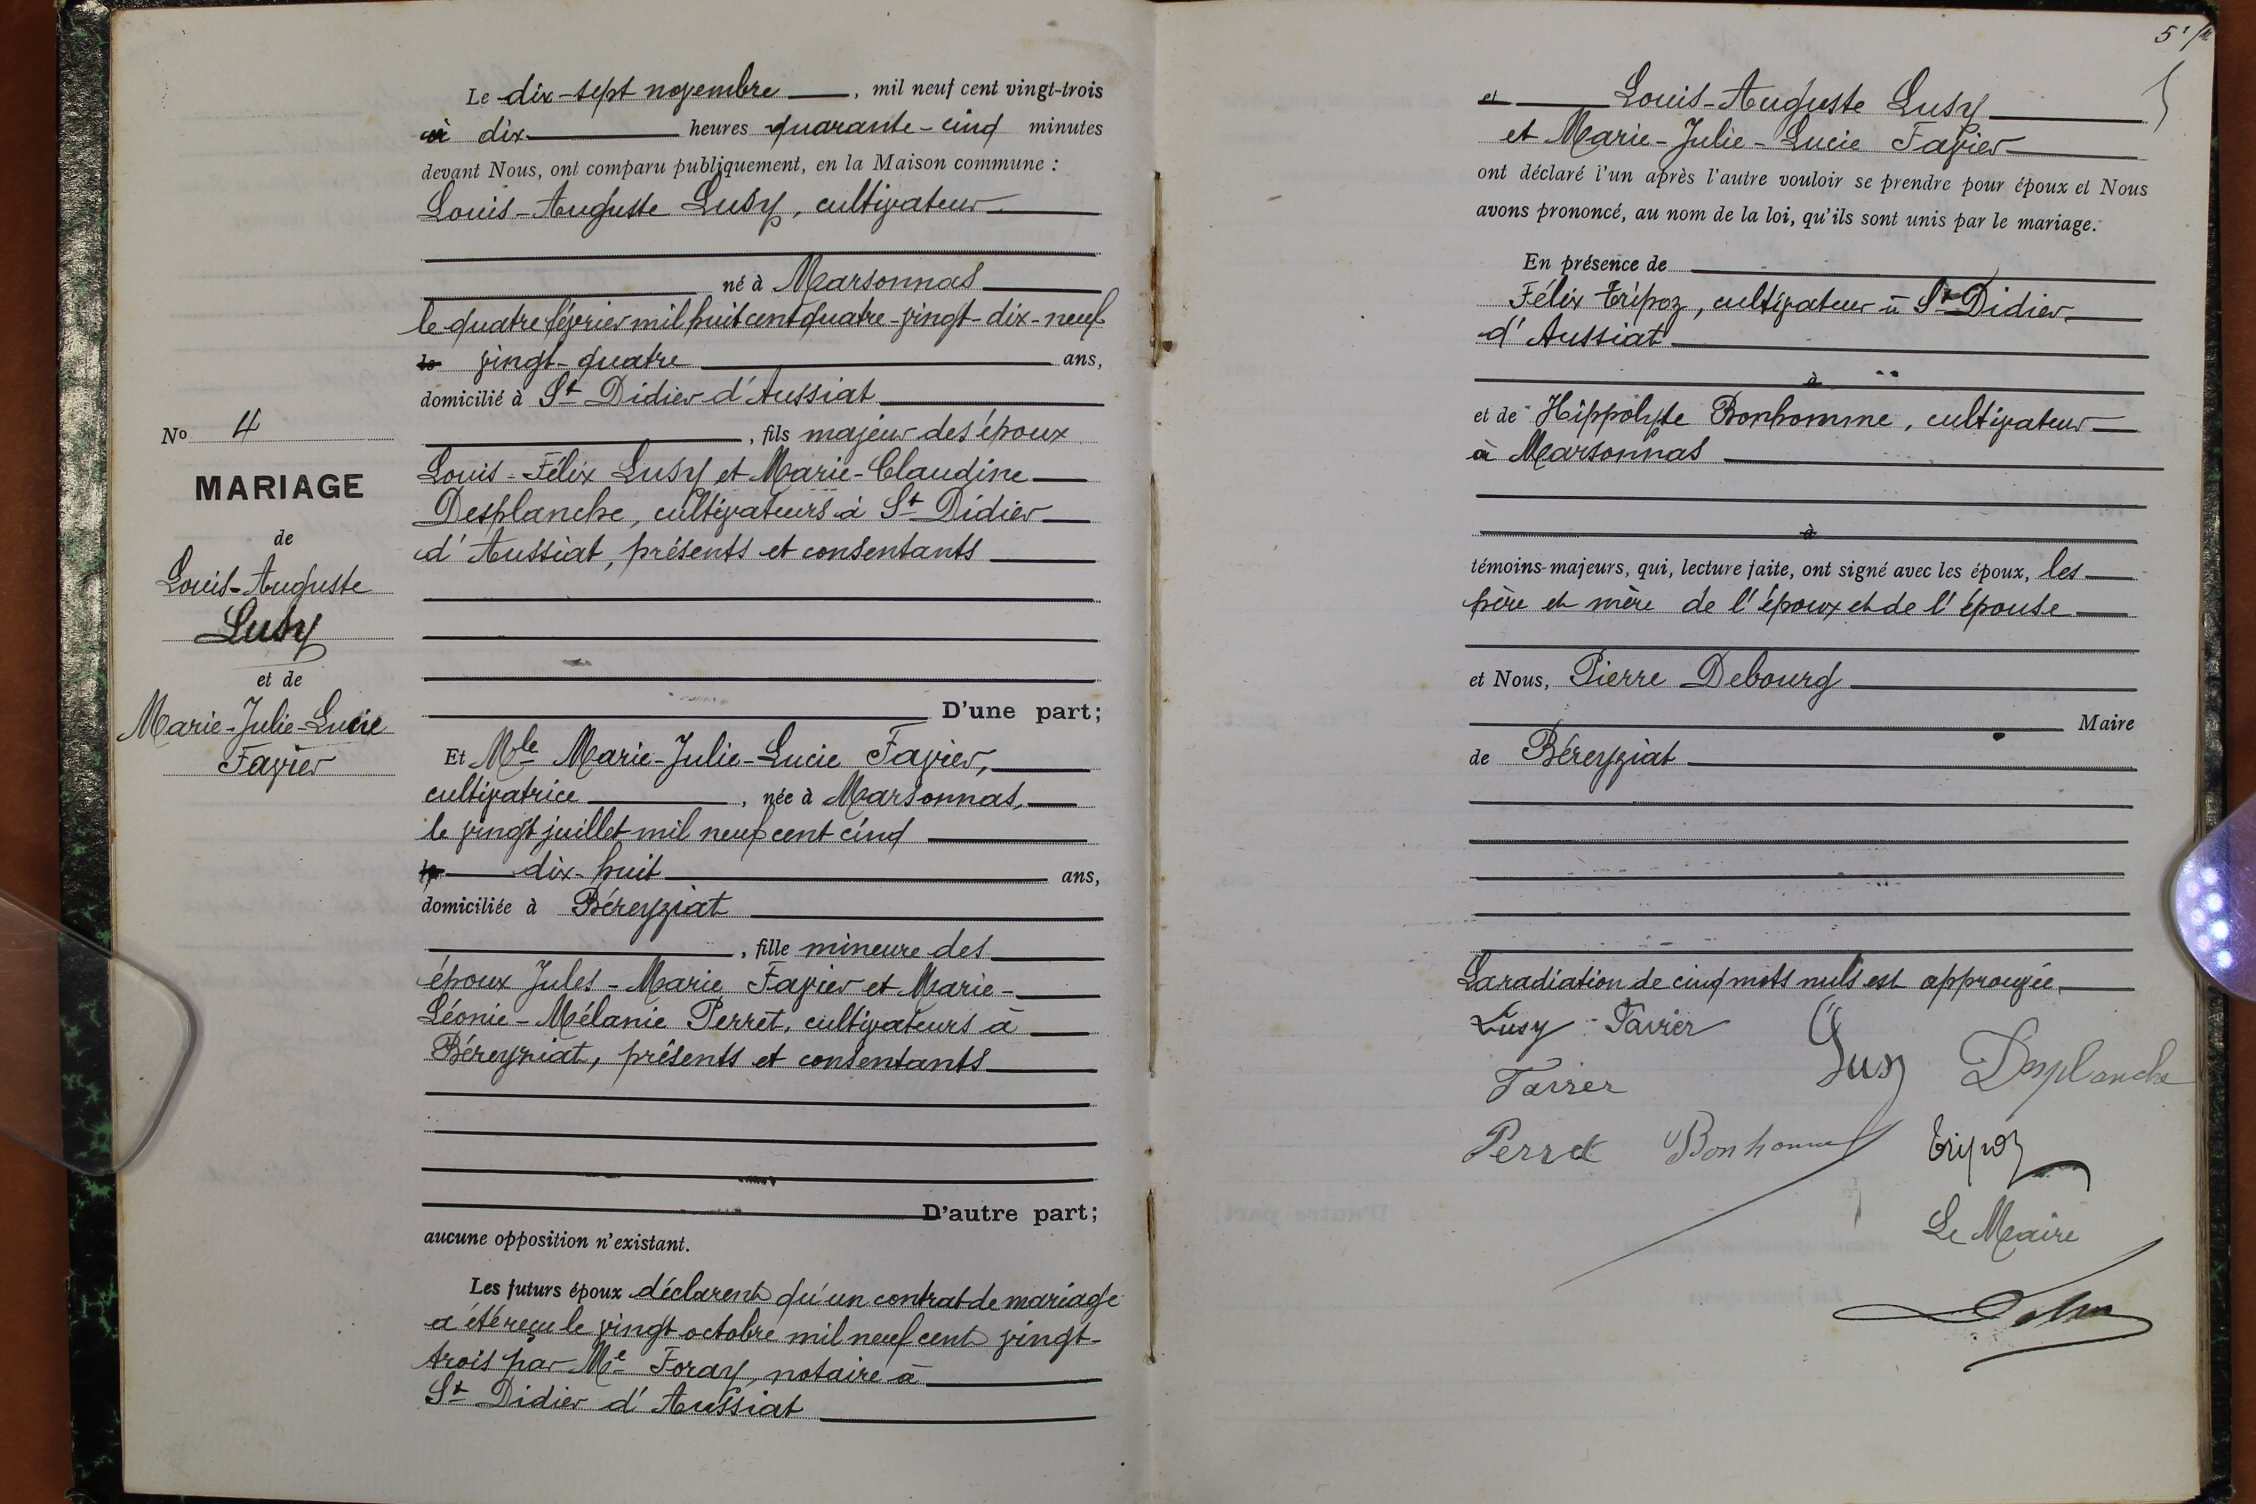 Le dix-sept novembre, mil neuf cent vingt-trois
à dix heures quarante-cinq minutes
devant Nous, ont comparu publiquement, en la Maison commune :
Louis-Auguste Lusy, cultivateur
né à Marsonnas
le quatre février mil huit cent quatre-vingt-dix-neuf
vingt-quatre ans,
domicilié à St Didier d'Aussiat
, fils majeur des époux
Louis-Félix Lusy et Marie-Claudine
Desplanche, cultivateurs à St Didier
d'Aussiat, présents et consentants
D'une part;
Et Mlle Marie-Julie-Lucie Favier,
cultivatrice, née à Marsonnas,
le vingt juillet mil neuf cent cinq
dix-huit ans,
domiciliée à Béreyziat
, fille mineure des
époux Jules-Marie Favier et Marie-
Léonie-Mélanie Perret, cultivateurs à
Béreyziat, présents et consentants
D'autre part;
aucune opposition n'existant.
Les futurs époux déclarent qu'un contrat de mariage
a été reçu le vingt octobre mil neuf cent vingt-
trois par Me Foray, notaire à
St Didier d'Aussiat
No 4
MARIAGE
de
Louis-Auguste
Lusy
et de
Marie-Julie-Lucie
Favier
et Louis-Auguste Lusy
et Marie-Julie-Lucie Favier
ont déclaré l'un après l'autre vouloir se prendre pour époux et Nous
avons prononcé, au nom de la loi, qu'ils sont unis par le mariage.
En présence de
Félix Tripoz, cultivateur à St Didier
d'Aussiat
à
et de Hippolyte Bonhomme, cultivateur
à Marsonnas
à
témoins majeurs, qui, lecture faite, ont signé avec les époux, les
père et mère de l'époux et de l'épouse
et Nous, Pierre Debourg
Maire
de Béreyziat
La radiation de cinq mots nuls est approuvée
Lusy Favier
Favier Lusy Desplanche
Perret Bonhomme Tripoz
Le Maire